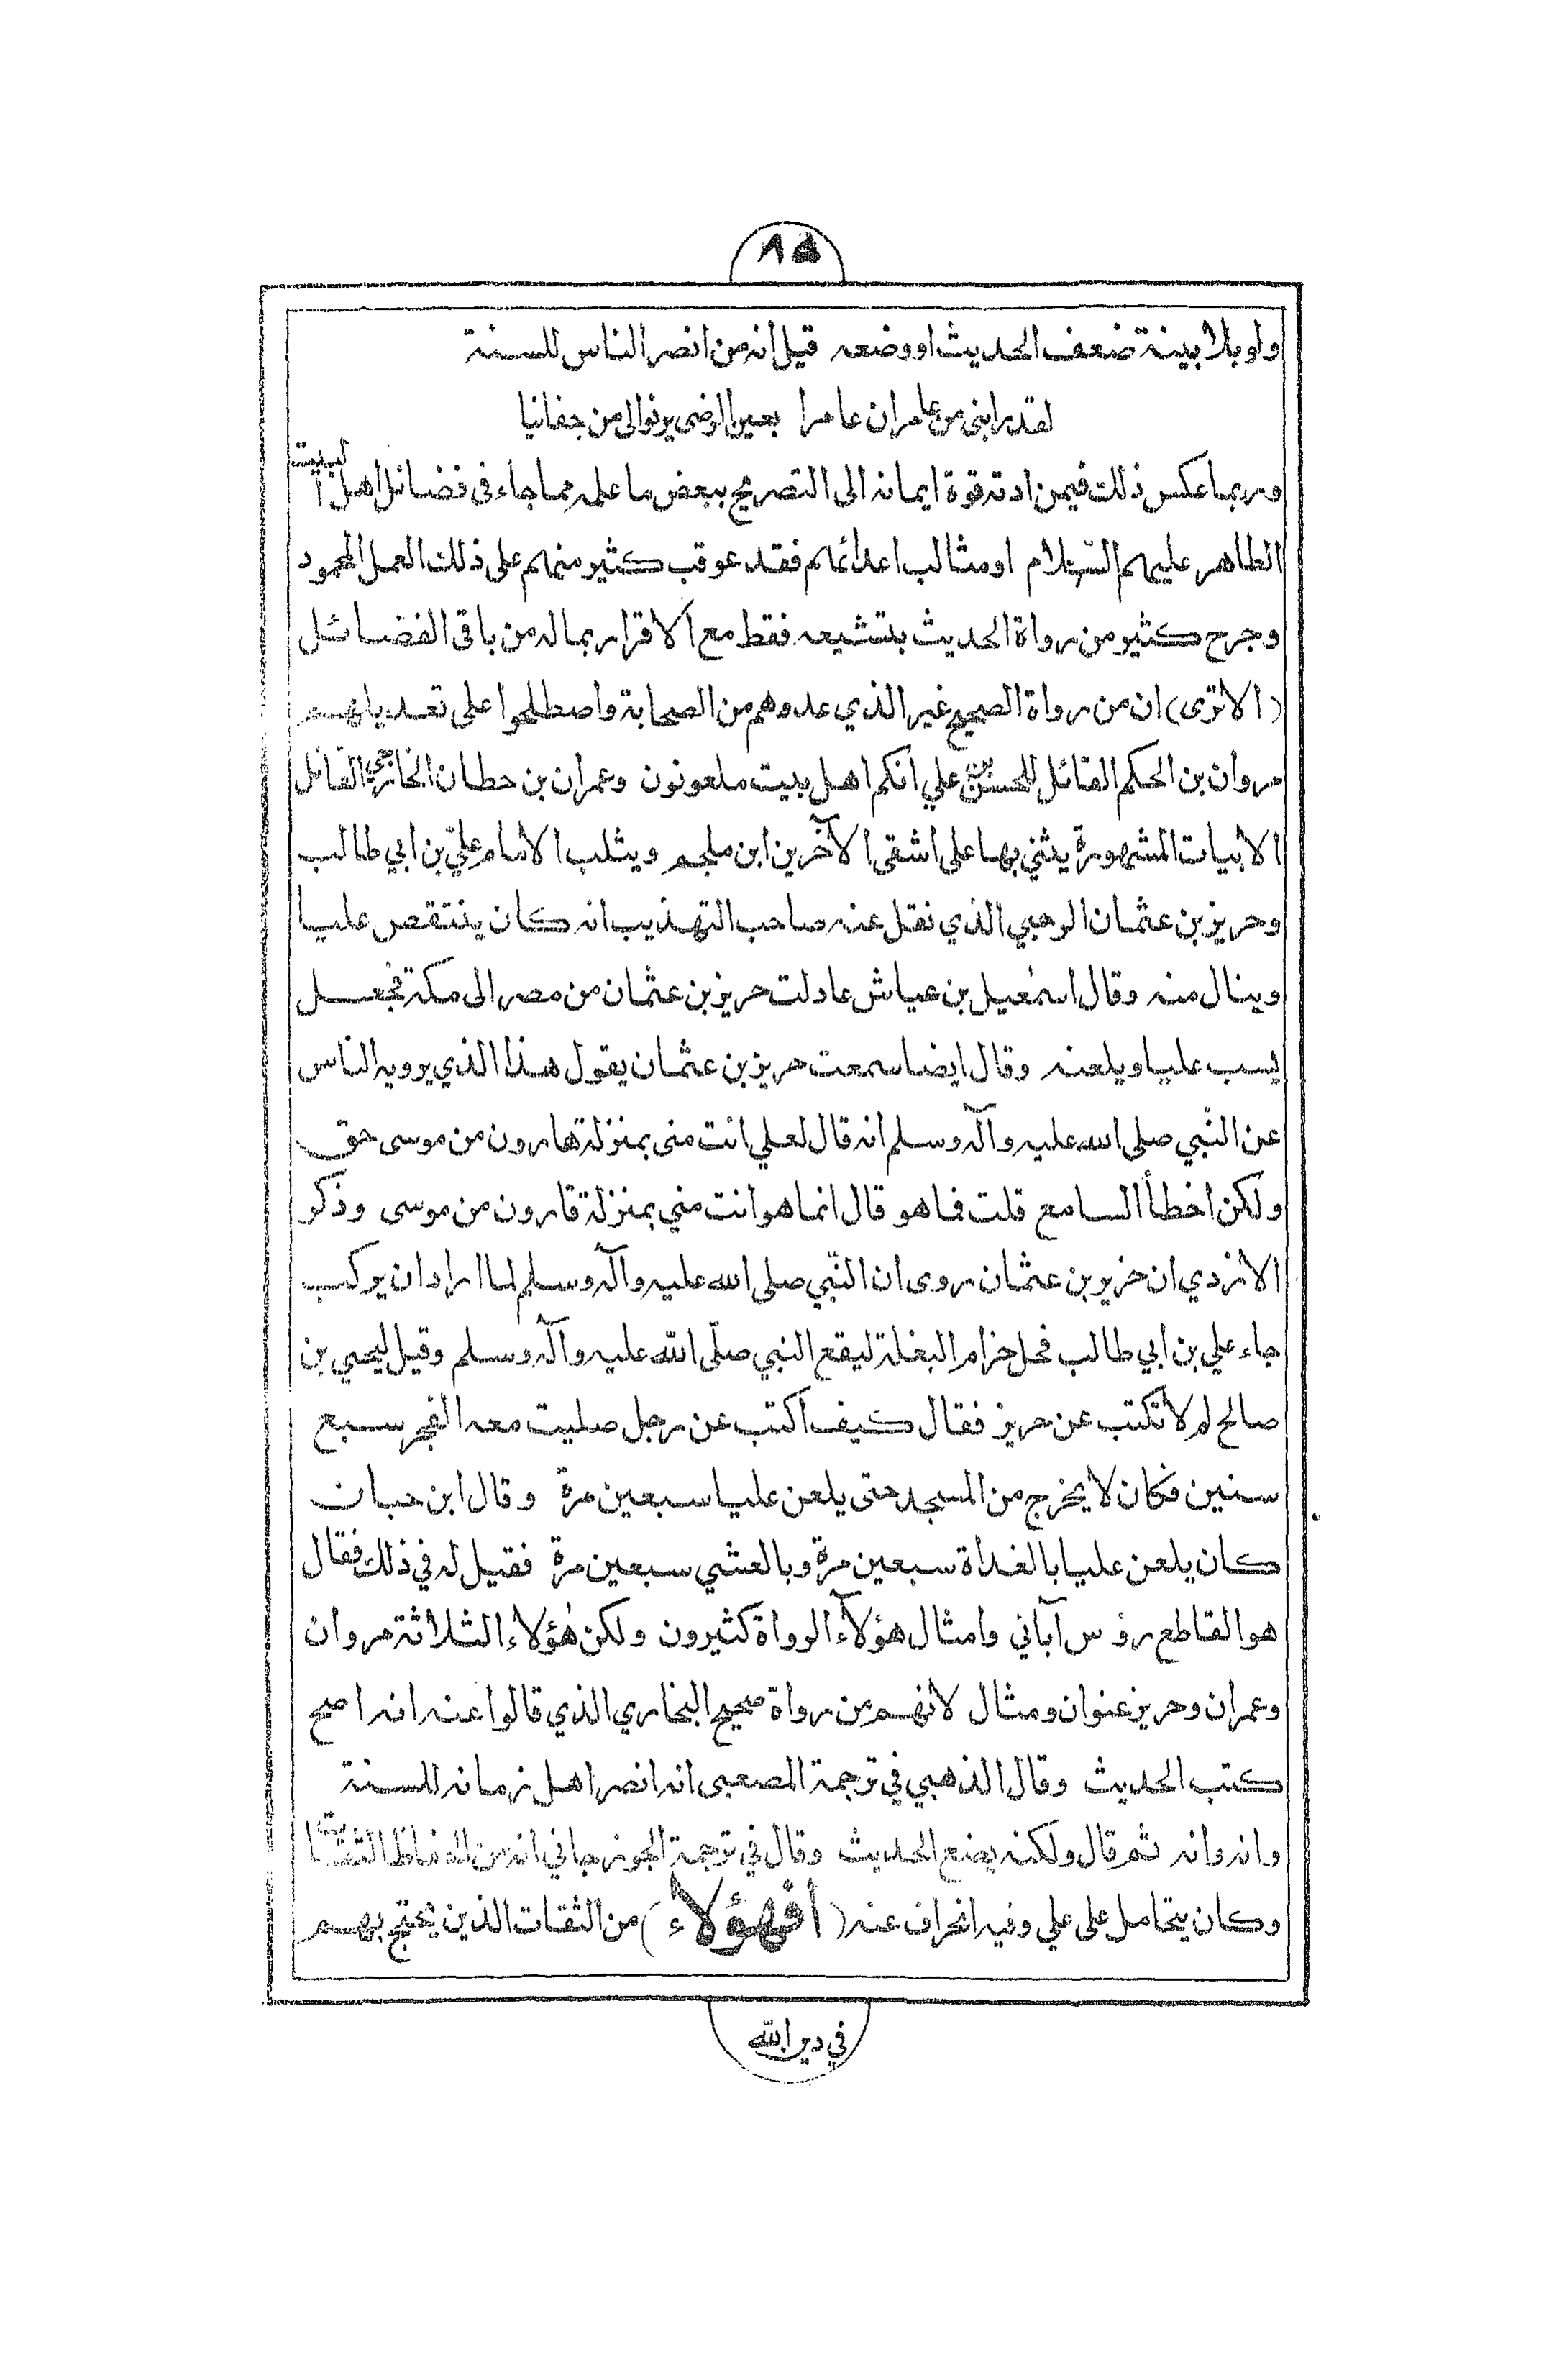 ٨٥
ولو بلا بينة ضعف الحديث او وضعه قيل انه من انصر الناس للسنة
لقد رابنى من عامر ان عامرا بعين الرضى يرنو الى من جفانيا
وربما عكس ذلك فيمن ادته قوة ايمانه الى التصريح ببعض ما علمه مما جاء فى فضائل اهل البيت
الطاهر عليهم السّلام او مثالب اعدائهم فقد عوقب كثير منهم على ذلك العمل المحمود
وجرح كثير من رواة الحديث بتشيعه فقط مع الاقرار بماله من باقى الفضائل
(الا ترى) ان من رواة الصحيح غير الذي عدوهم من الصحابة واصطلحوا على تعديلهم
مروان بن الحكم القائل للحسن بن علي انكم اهل بيت ملعونون وعمران بن حطان الخارجي القائل
الابيات المشهورة يثني بها على اشقى الآخرين ابن ملجم ويثلب الامام عليّ بن ابي طالب
وحريز بن عثمان الرحبي الذي نقل عنه صاحب التهذيب انه كان ينتقص عليا
وينال منه وقال اسمٰعيل بن عياش عادلت حريز بن عثمان من مصر الى مكة فجعل
يسب عليا ويلعنه وقال ايضا سمعت حريز بن عثمان يقول هذا الذي يرويه الناس
عن النّبي صلى الله عليه وآله وسلم انه قال لعلي انت منى بمنزلة هارون من موسى حق
ولكن اخطأ السامع قلت فما هو قال انما هو انت مني بمنزلة قارون من موسى وذكر
الازدي ان حريز بن عثمان روى ان النّبي صلى الله عليه وآله وسلم لما اراد ان يركب
جاء علي بن ابي طالب فحل حزام البغلة ليقع النبي صلّى الله عليه وآله وسلم وقيل ليحيي بن
صالح لم لا تكتب عن حريز فقال كيف اكتب عن رجل صليت معه الفجر سبع
سنين فكان لا يخرج من المسجد حتى يلعن عليا سبعين مرة وقال ابن حبان
كان يلعن عليا بالغداة سبعين مرة وبالعشي سبعين مرة فقيل له في ذلك فقال
هو القاطع رؤس آبائي وامثال هؤلآء الرواة كثيرون ولكن هٰؤلاء الثلاثة مروان
وعمران وحريز عنوان ومثال لانهم من رواة صحيح البخاري الذي قالوا عنه انه اصح
كتب الحديث وقال الذهبي في ترجمة المصعبى انه انصر اهل زمانه للسنة
وانه وانه ثم قال ولكنه يضع الحديث وقال في ترجمة الجوزجاني انه من الحفاظ الثقات
وكان يتحامل على علي وفيه انحراف عنه (أفهؤلاء) من الثقات الذين يحتج بهم
في دين الله